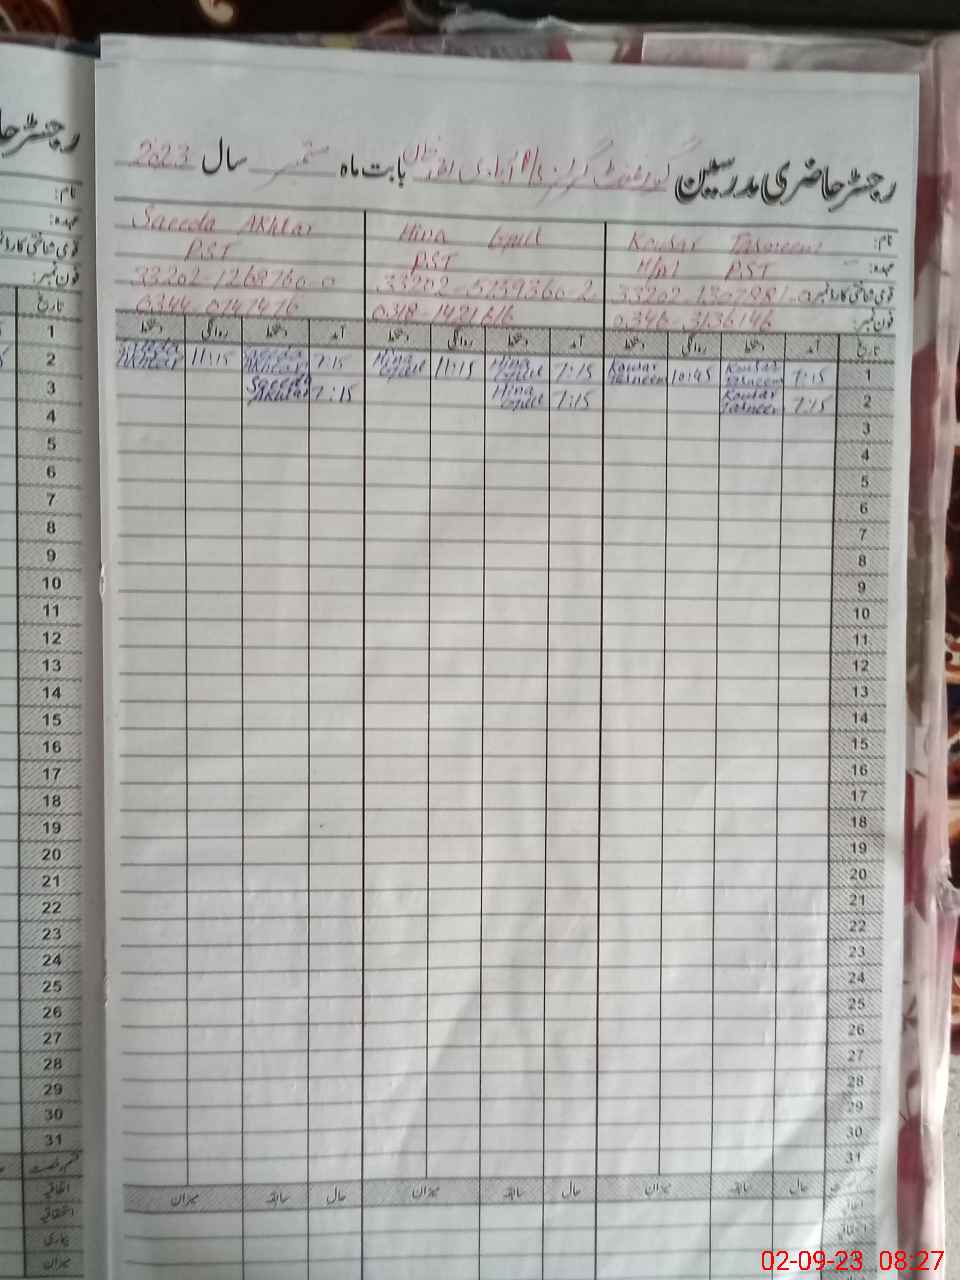 رجسٹر حاضری مدرسین گورنمنٹ گرلز بابت ماہ ستمبر سال 2023
نام: Kousar Tasneem Hina Gull Saeeda Akhtar
عہدہ: PST PST PST
قومی شناختی کارڈ نمبر
فون نمبر: 0346-3136146 0318-1421616 0344-0747476
تاریخ آمد دستخط روانگی دستخط آمد دستخط روانگی دستخط آمد دستخط روانگی دستخط
1 7:15 Kousar Tasneem 10:45 Kousar Tasneem 7:15 Hina Gull 11:15 Hina Gull 7:15 Saeeda Akhtar 11:15 Saeeda Akhtar
2 7:15 Kousar Tasneem 7:15 Hina Gull 7:15 Saeeda Akhtar
3
4
5
6
7
8
9
10
11
12
13
14
15
16
17
18
19
20
21
22
23
24
25
26
27
28
29
30
31
حال سابقہ میزان حال سابقہ میزان حال سابقہ میزان
رجسٹر حا
نام:
عہدہ:
قومی شناختی کارڈ
فون نمبر:
تاریخ
1
2
3
4
5
6
7
8
9
10
11
12
13
14
15
16
17
18
19
20
21
22
23
24
25
26
27
28
29
30
31
قسم رخصت
اتفاقیہ
استحقاقیہ
بیماری
میزان
02-09-23 08:27